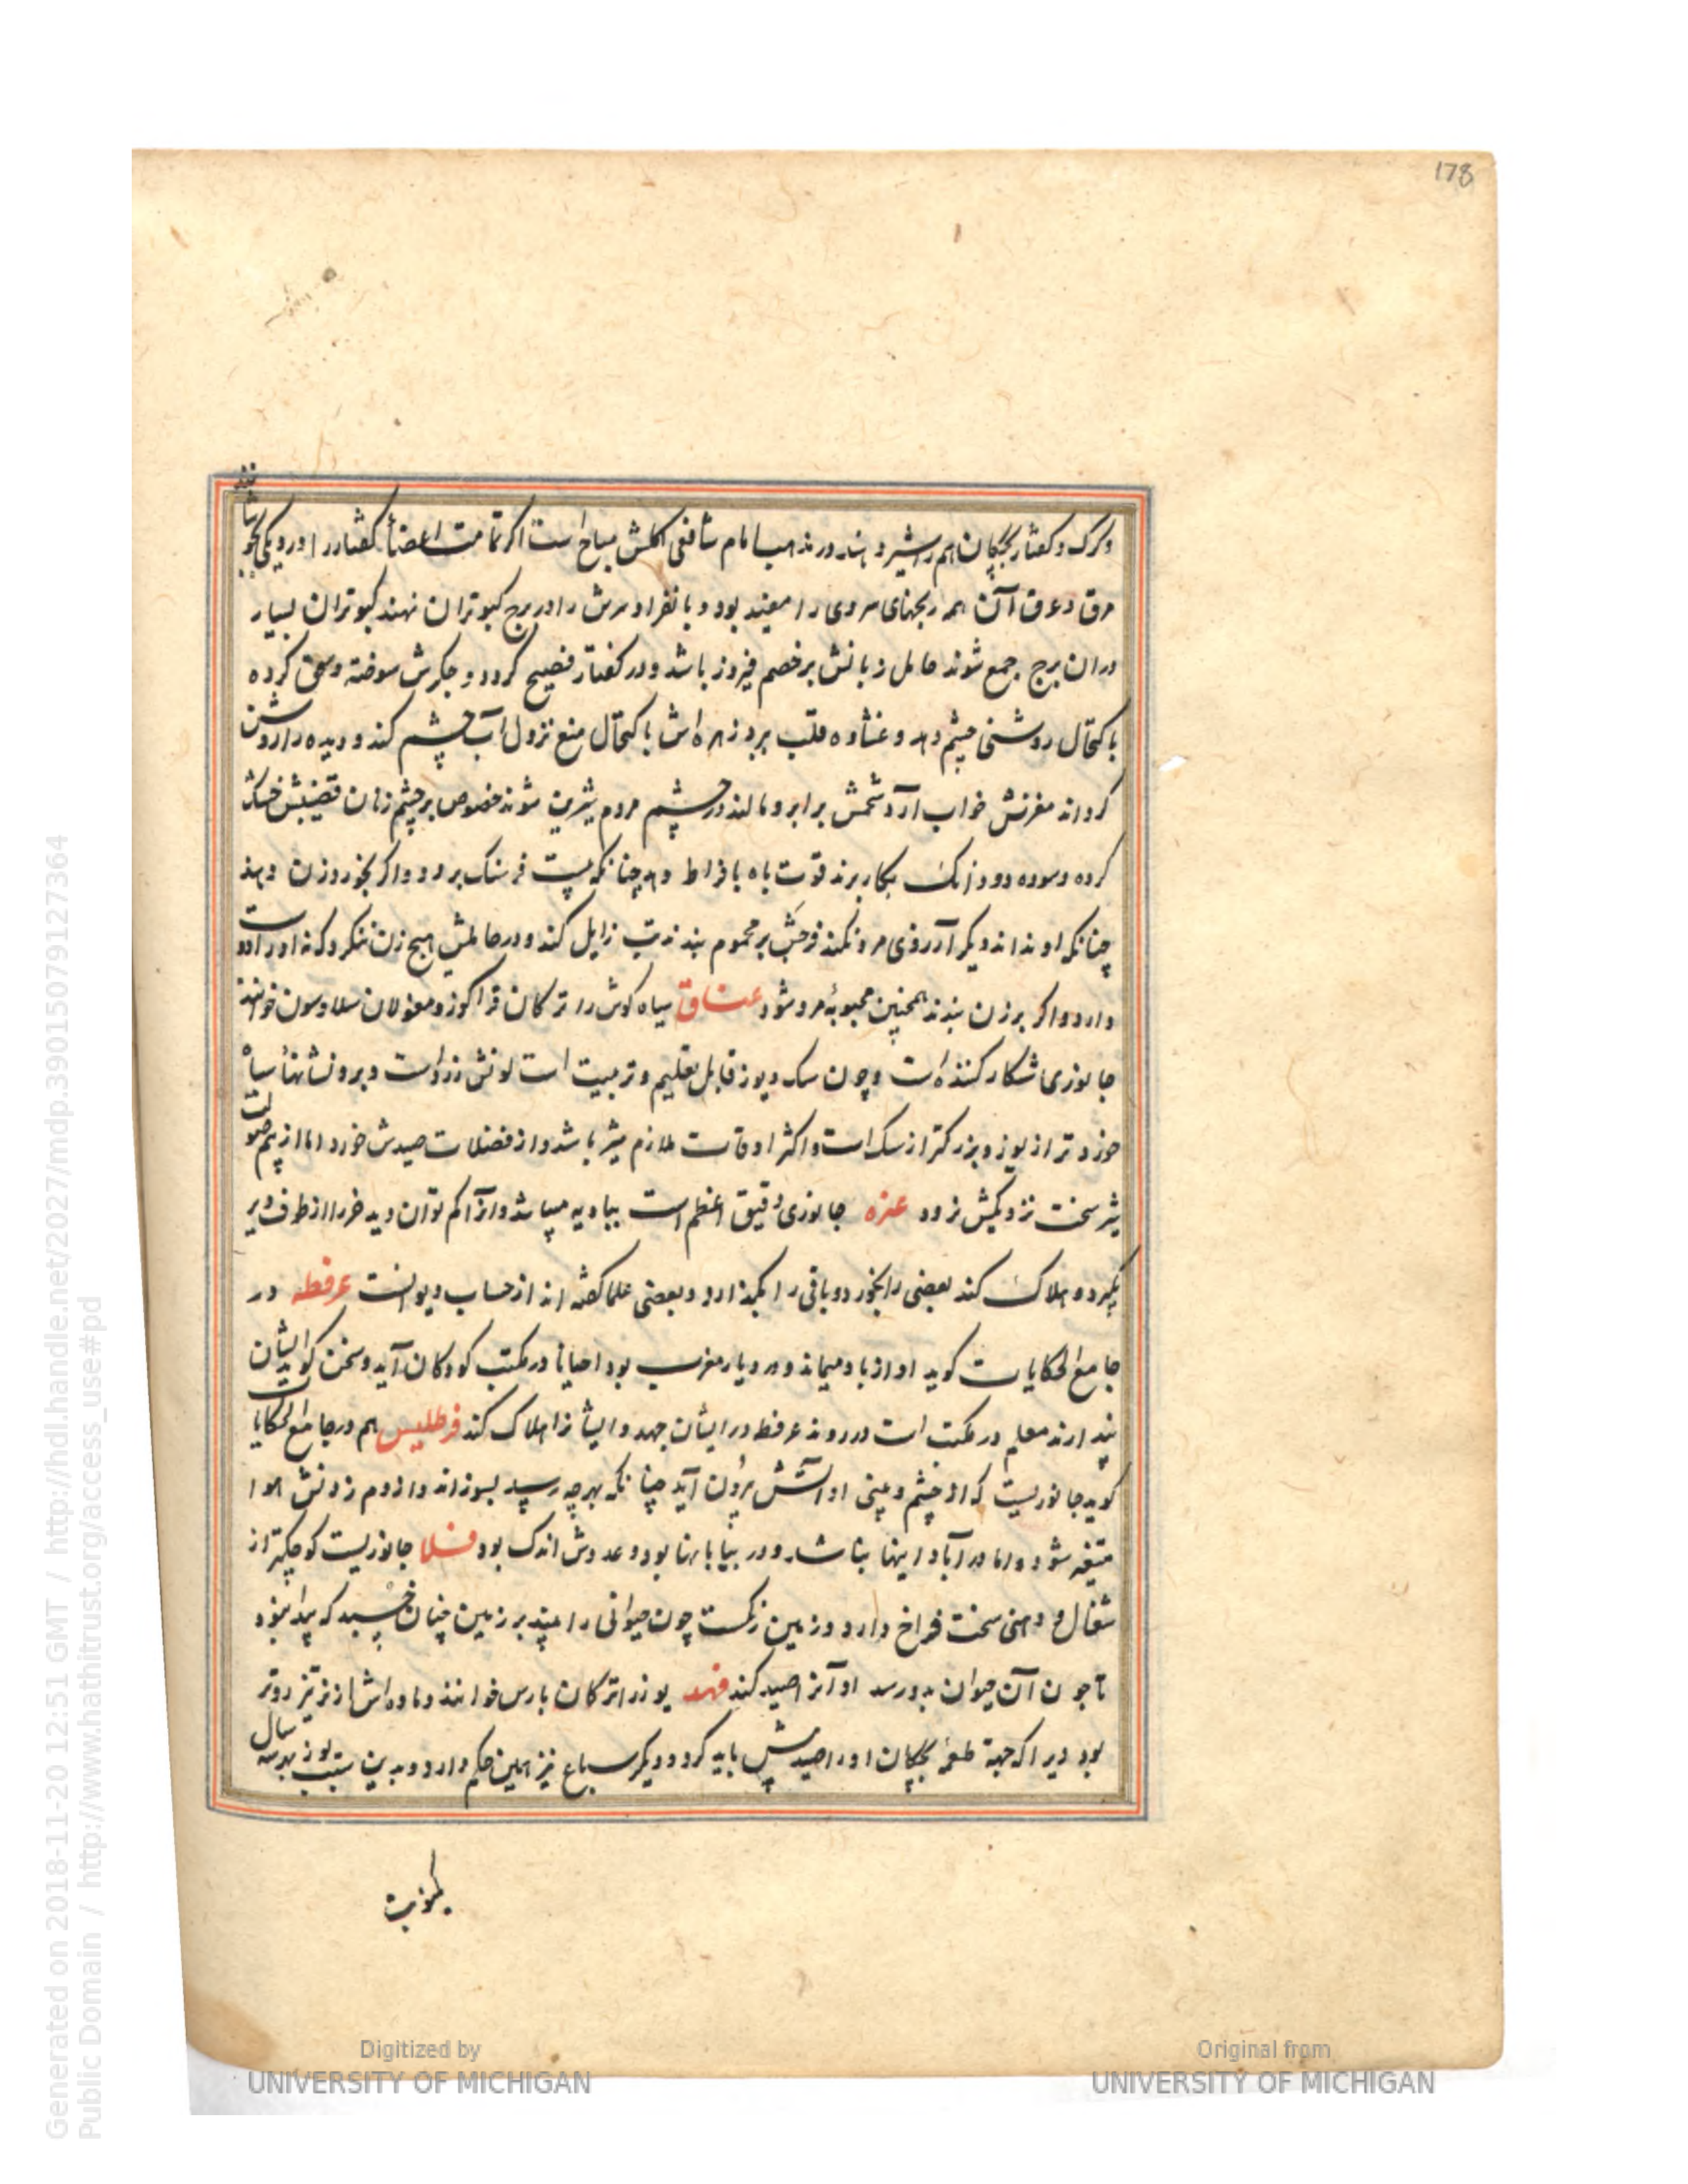 178
وکرک و کفتار بچکان هم را شیر دهند و در مذهب امام شافعی اکلش مباح است اکر تمامت اعضأ کفتار را در دیکی بجوشانند
مرق و عرق آن همه رنجهای سردی را مفید بود و بانفراد سرش را در برج کبوتران نهند کبوتران بسیار
دران برج جمع شوند حامل زبانش بر خصم فیروز باشد و در کفتار فصیح کردد و جکرش سوخته و سحق کرده
باکتحال روشنی چشم دهد و غشاوه قلب ببرد زهره اش باکتحال منع نزول آب چشم کند و دیده را روشن
کرداند مغزش خواب آرد شحمش بر ابرو مالند در چشم مردم شیرین شوند خصوص بر چشم زنان قضیبش خشک
کرده و سوده دو دانک بکار برند قوت باه بافراط دهد چنانکه بیست فرسنک برود و اکر بخورد زن دهند
چنانکه او نداند دیکر آرزوی مرد نکند فرجش بر محموم بندند تب زایل کند و در حاملش هیچ زن ننکرد که نه او را دوست
دارد و اکر بر زن بندند همچنین محبوبهٔ مرد شود عناق سیاه کوش را ترکان قراکوز و مغولان سلاوسون خوانند
جانوری شکار کننده است و چون سک و یوز قابل تعلیم و تربیت است لونش زرد است و برو نشانهأ سیاه
خردتر از یوز و بزرکتر از سک است و اکثر اوقات ملازم شیر باشد و از فضلات صیدش خورد اما از بیم صولت
شیر سخت نزدیکیش نرود عنزه جانوری دقیق اعظم است ببادیه میباشد و آنرا کم توان دید خر را از طرف دبر
بکیرد و هلاک کند بعضی را بخورد و باقی را بکذارد و بعضی علما کفته اند از حساب دیوانست عرفطه در
جامع الحکایات کوید او از باد میماند و در دیار مغرب بود احیانا در مکتب کودکان آید و سخن کوید ایشان
پندارند معلم در مکتب است در روند عرفطه در ایشان جهد و ایشانرا هلاک کند فرطلیس هم در جامع الحکایات
کوید جانوریست که از چشم و بینی او آتش بیرون آید چنانکه بهرچه رسد بسوزاند و از دم زدنش هوا
متغیر شود و اما در آبادانیها نباشد و در بیابانها بود و عددش اندک بود فسلا جانوریست کوچکتر از
شغال و دهنی سخت فراخ دارد و زمین رنکست چون حیوانی را بیند بر زمین چنان خسبد که پیدا نبود
تا چون آن حیوان بدو رسد او آنرا صید کند فهد یوز را ترکان بارس خوانند و ماده اش از نر تیزروتر
بود زیرا که جهة طعمهٔ بچکان او را صید بیش باید کرد و دیکر سباع نیز همین حکم دارد و بدین سبب یوز بهر سه سال
یکنوبت
Generated on 2018-11-20 12:51 GMT / http://hdl.handle.net/2027/mdp.39015079127364
Public Domain / http://www.hathitrust.org/access_use#pd
Digitized by
UNIVERSITY OF MICHIGAN
Original from
UNIVERSITY OF MICHIGAN